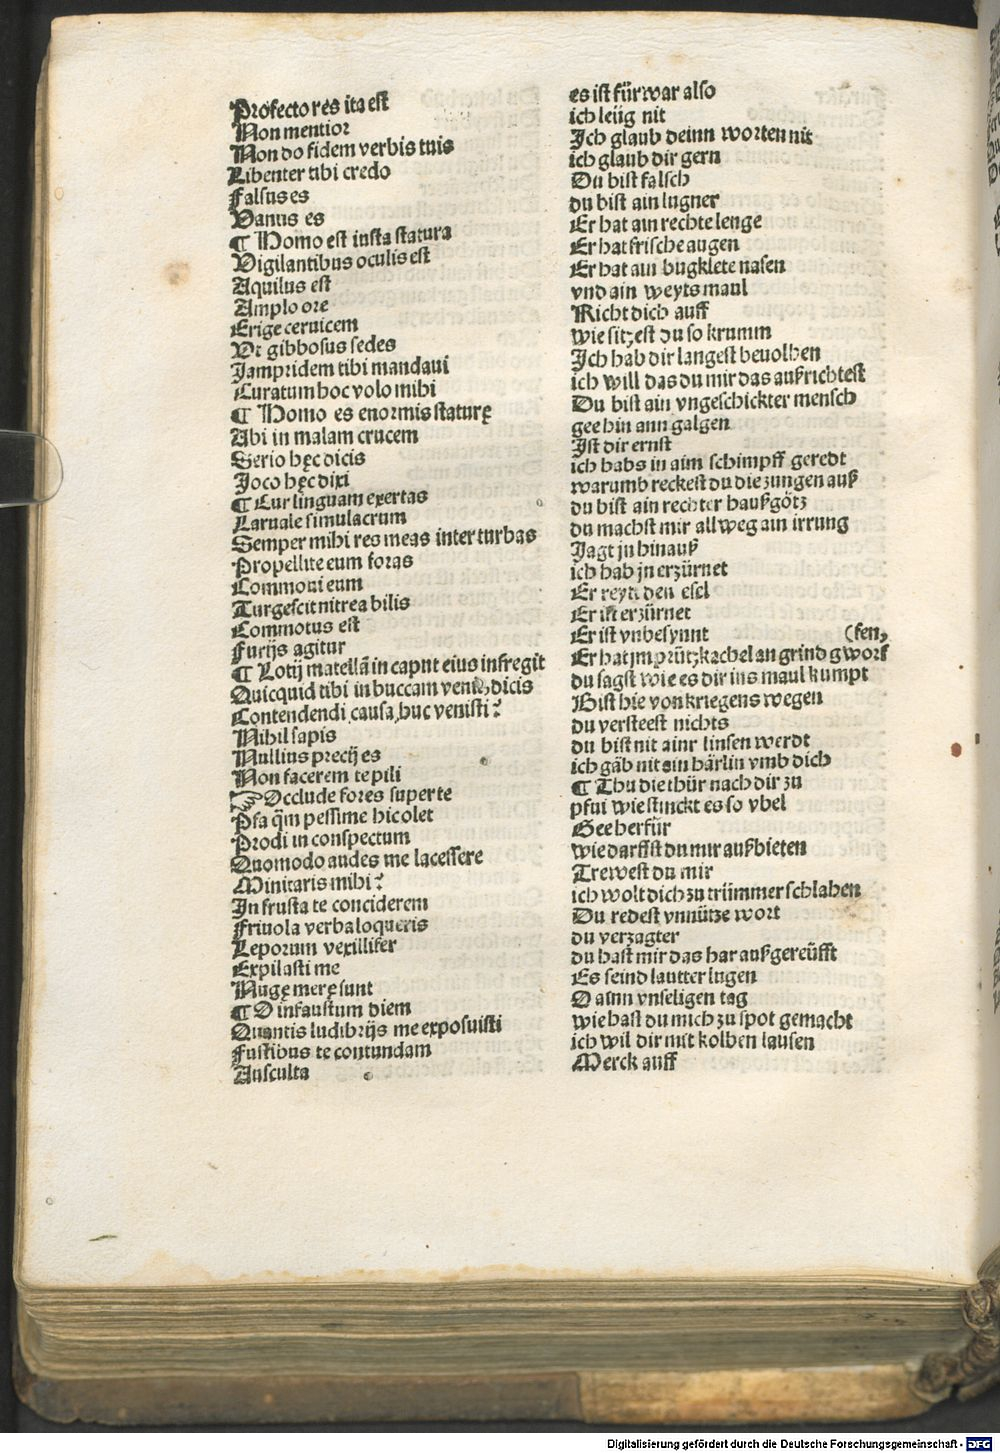 Profecto res ita est
Non mentior
Non do fidem verbis tuis
Libenter tibi credo
Falsus es
Vanus es
¶ Homo est iusta statura
Vigilantibus oculis est
Aquilus est
Amplo ore
Erige ceruicem
Vt gibbosus sedes
Jampridem tibi mandaui
Curatum hoc volo mihi
¶ Homo es enormis staturę
Abi in malam crucem
Serio hęc dicis
Joco hęc dixi
¶ Cur linguam exertas
Laruale simulacrum
Semper mihi res meas inter turbas
Propellite eum foras
Commoui eum
Turgescit nitrea bilis
Commotus est
Furijs agitur
¶ Lotij matellã in caput eius infregit
Quicquid tibi in buccam venit, dicis
Contendendi causa, huc venisti?
Nihil sapis
Nullius precij es
Non facerem te pili
☞ Occlude fores super te
Pfa q̃m pessime hic olet
Prodi in conspectum
Quomodo audes me lacessere
Minitaris mihi?
In frusta te conciderem
Friuola verba loqueris
Leporum vexillifer
Expilasti me
Nugę merę sunt
¶ O infaustum diem
Quantis ludibrijs me exposuisti
Fustibus te contundam
Ausculta
es ist fürwar also
ich leüg nit
Ich glaub deinn worten nit
ich glaub dir gern
Du bist falsch
du bist ain lugner
Er hat ain rechte lenge
Er hat frische augen
Er hat ain bugklete nasen
vnd ain weyts maul
Richt dich auff
wie sitzest du so krumm
Ich hab dir langest beuolhen
ich will das du mir das außrichtest
Du bist ain vngeschickter mensch
gee hin ann galgen
Ist dir ernst
ich habs in aim schimpff geredt
warumb reckest du die zungen auß
du bist ain rechter haußgötz
du machst mir allweg ain irrung
Jagt jn hinauß
ich hab jn erzürnet
Er reyt den esel
Er ist erzürnet
Er ist vnbesynnt (fen,
Er hat jm prũtzkachel an grind gworf
du sagst wie es dir ins maul kumpt
Bist hie von kriegens wegen
du versteest nichts
du bist nit ainr linsen werdt
ich gäb nit ein härlin vmb dich
¶ Thu die thür nach dir zu
pfui wie stinckt es so vbel
Gee herfür
wie darffst du mir außbieten
Trewest du mir
ich wolt dich zu trümmer schlahen
Du redest vnnütze wort
du verzagter
du hast mir das har außgereüfft
Es seind lautter lugen
O ainn vnseligen tag
wie hast du mich zu spot gemacht
ich wil dir mit kolben lausen
Merck auff
Digitalisierung gefördert durch die Deutsche Forschungsgemeinschaft - DFG